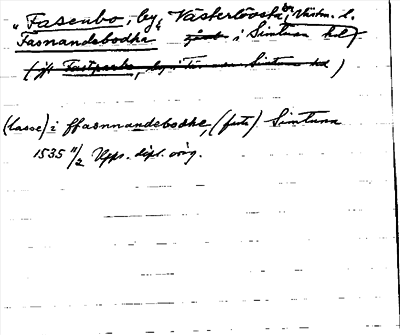 "Fasenbo, by, Västerlövsta sn, Västm. l.
Fasnandebodha gård i Simtuna hd)
(jfr Fastparbo, by i Simtuna hd)
(lasse) i ffasnnandebodhe, (feste) Simtuna
1535 11/2 Upps. dipl. orig.